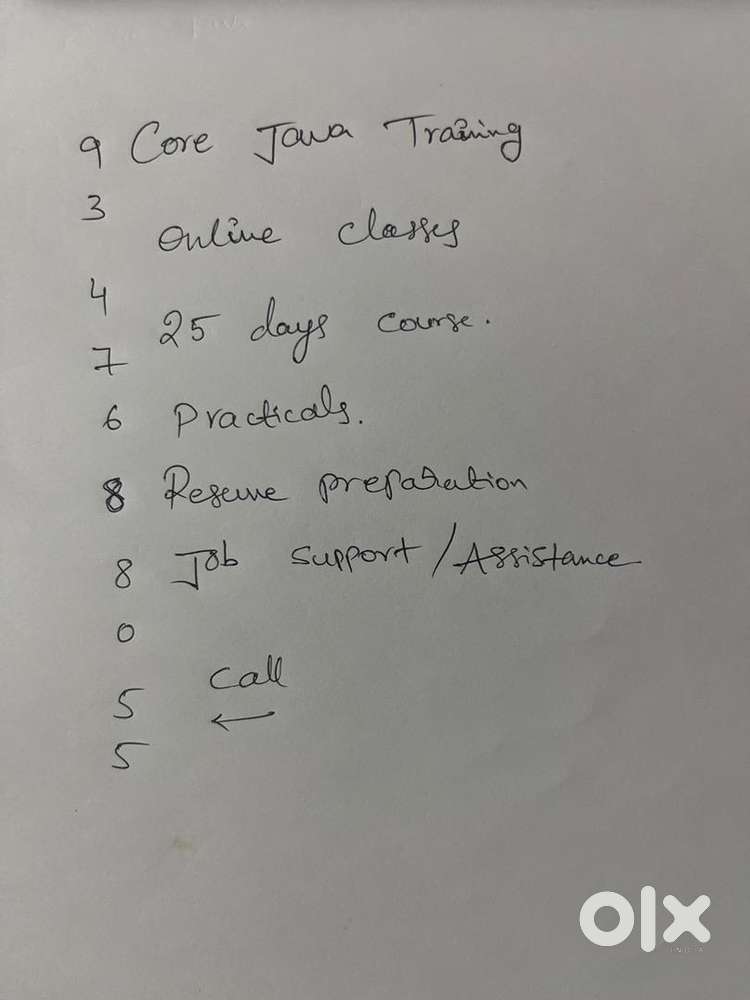 9 Core Java Training
3
Online classes
4
25 days course.
7
6 Practicals.
8 Resume preparation
8 Job support/Assistance
0
Call
5 ←
5
olx
INDIA